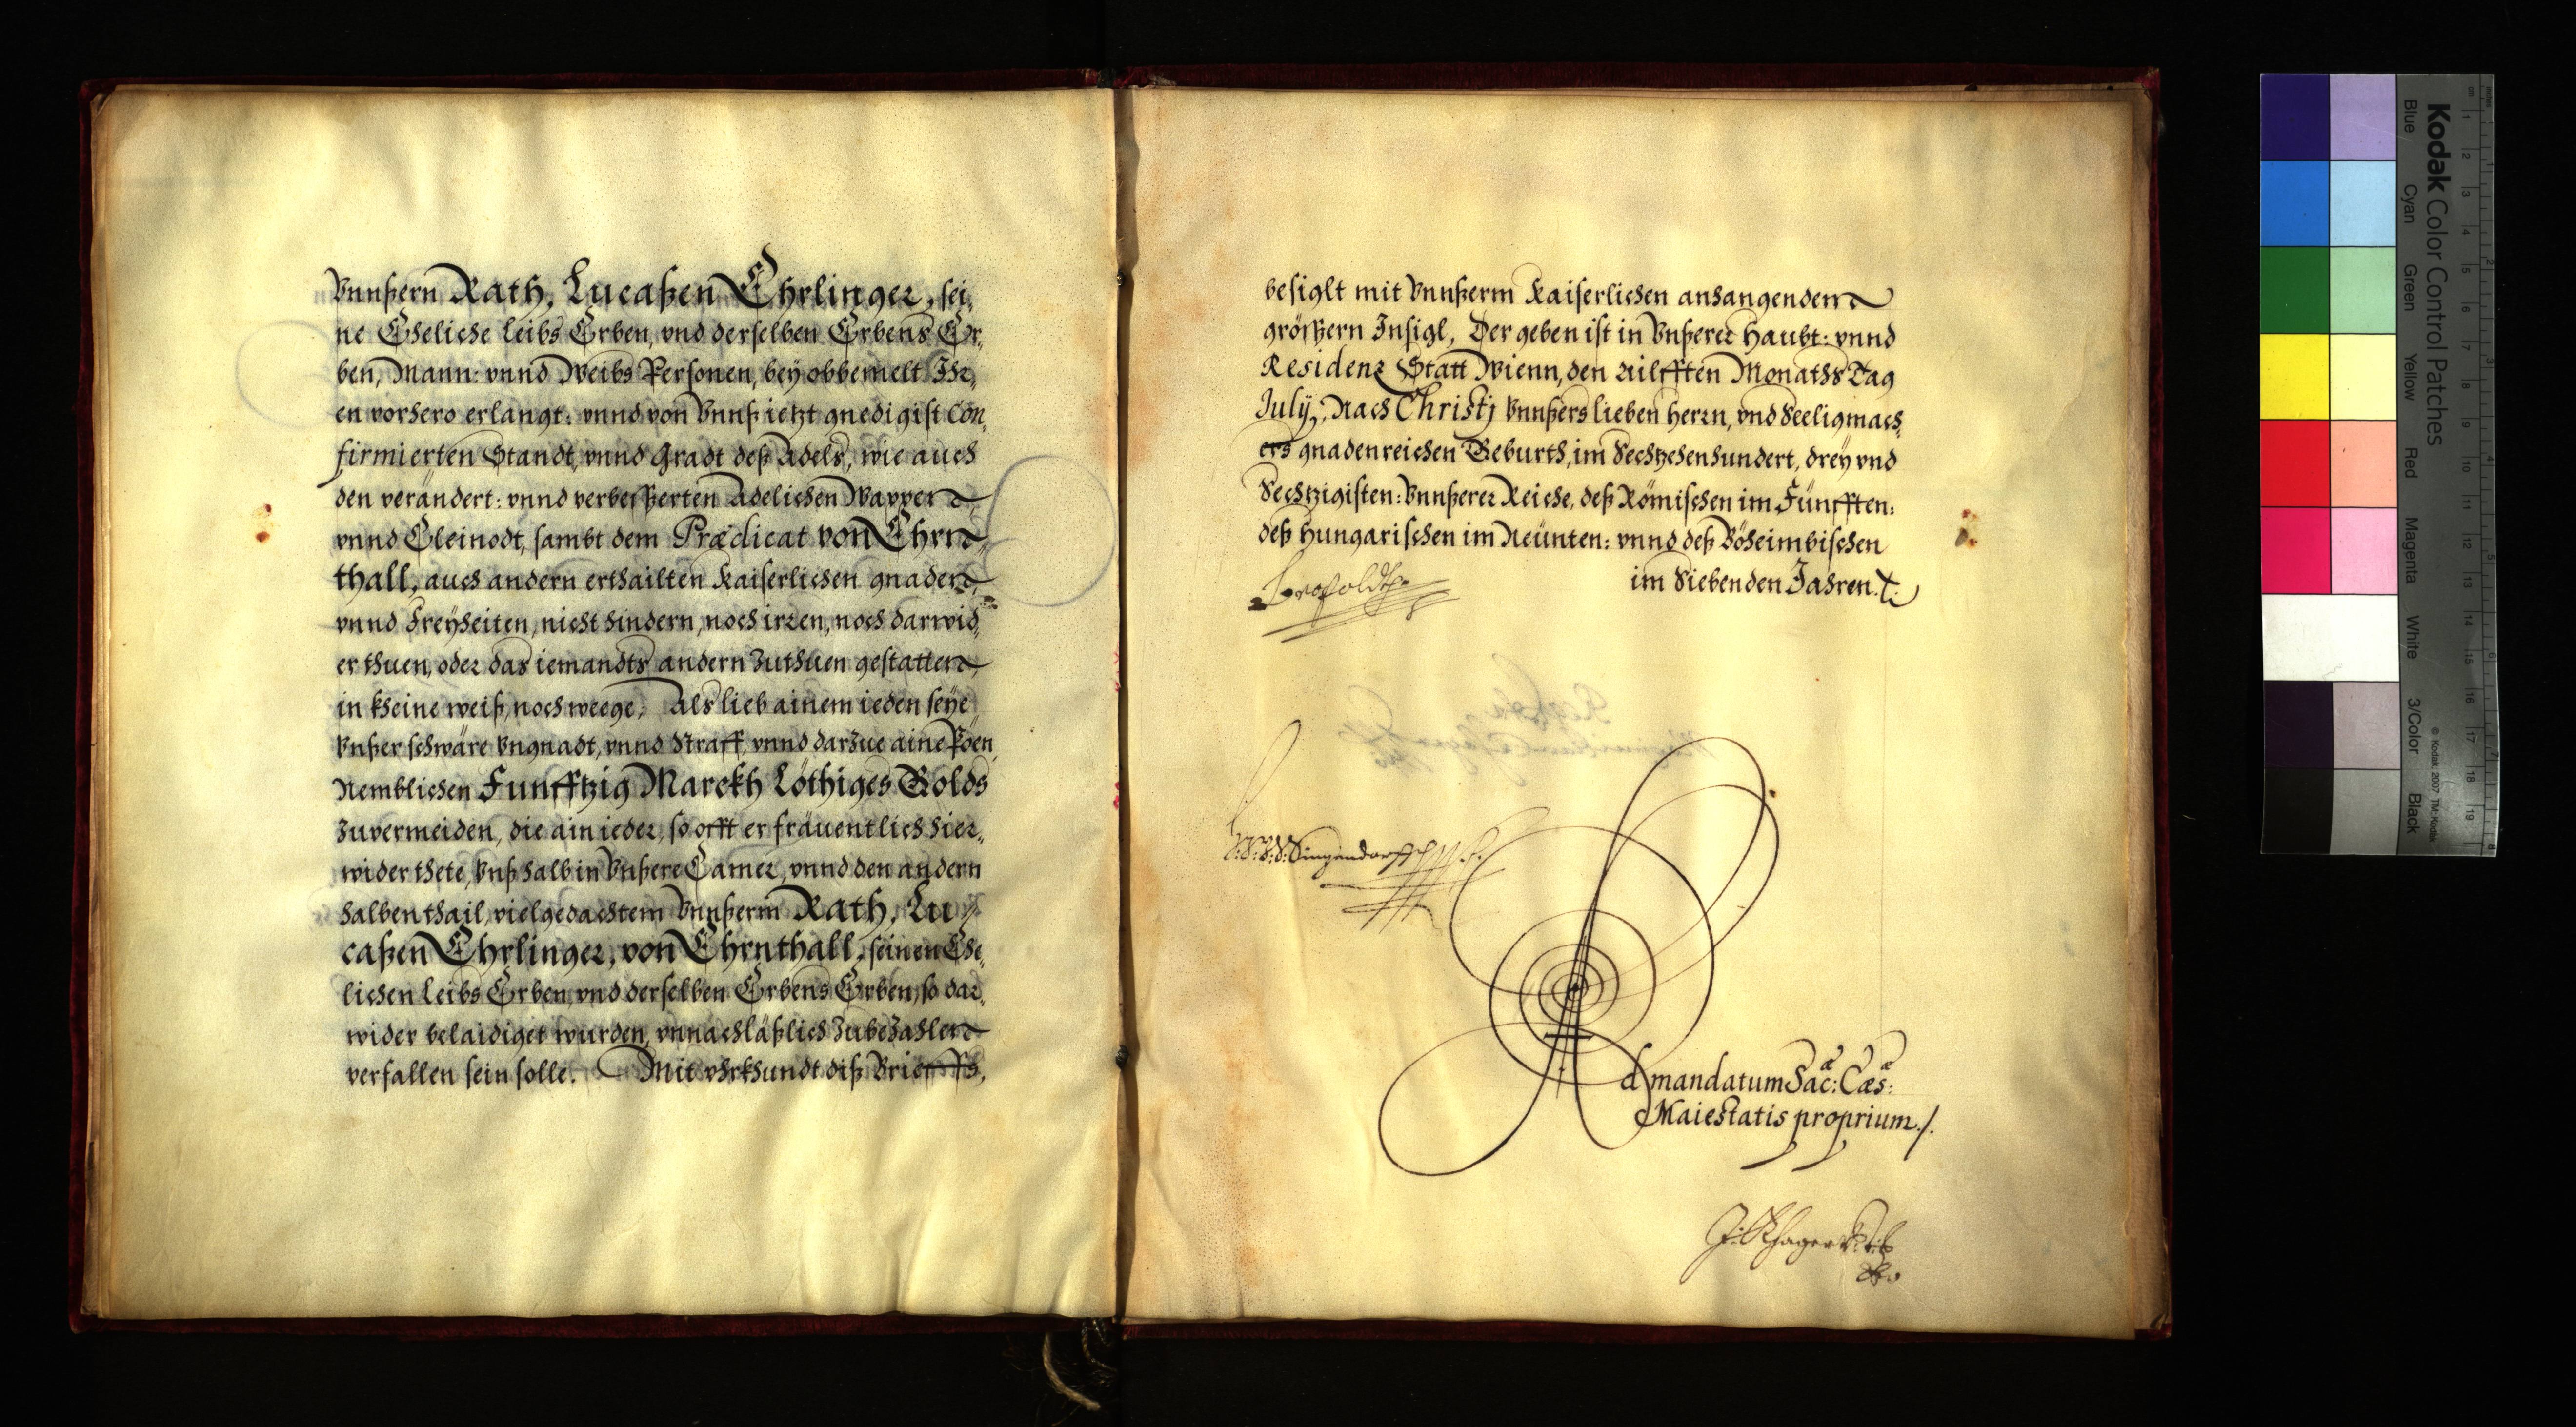 Vnnßern Rath, Lucaßen Ehrlinger, sei,
ne Eheliche leibs Erben, vnd derselben Erbens Er,
ben, Mann: vnnd Weibs Persohnen, bey obbemelt Ihr,
en vorhero erlangt: vnnd von Vnnß ietzt gnedigist Con,
firmierten Standt, vnnd Gradt deß Adels, wie auch
den verändert: vnnd verbeßserten Adelichen Wappen,
vnnd Cleinodt, sambt dem Prædicat von Ehrn,
thall, auch andern erthailten Kaiserlichen gnaden,
vnnd Freyheiten, nicht hindern, noch irren, noch darwid,
er thuen, oder das iemandts andern Zuthuen gestatten,
in kheine weiß, noch weege, Als lieb ainem ieden seye
Vnßer schwäre Vngnadt, vnnd Straff, vnnd darzue aine Pöen,
Nemblichen Funfftzig Marckh Löthiges Golds
Zuvermeiden, die ain ieder, so offt er fräuentlich hier,,
wider thete, Vnß halb in Vnßere Camer, vnnd den andern
halben thail, vielgedachtem Vnnßerm Rath, Lu//
caßen Ehrlinger, von Ehrnthall, seinen Ehe,
lichen leibs Erben, vnd derselben Erbens Erben, so dar,
wider belaidiget wurden, vnnachläßlich Zubezahlen
verfallen sein solle. Mit vhrkhundt diß Brieffs,
besiglt mit Vnnßerm Kaiserlichen anhangenden
größsern Insigl, Der geben ist in Vnßerer Haubt: vnnd
Residenz Statt Wienn, den Ailfften Monaths Tag
July, Nach Christj Vnnßers lieben Herrn, vnd Seeligmach,
ers gnadenreichen Geburth, im Sechtzehenhundert, drey vnd
Sechtzigisten: Vnnßerer Reiche, deß Römischen im Fünfften:
deß Hungarischen im Neünten: vnnd deß Böheimbischen
im Siebenden Jahren.
Leopoldt
Sintzendorff
Ad mandatum Sacæ: Cæsæ:
Maiestatis proprium./.
J: Khager